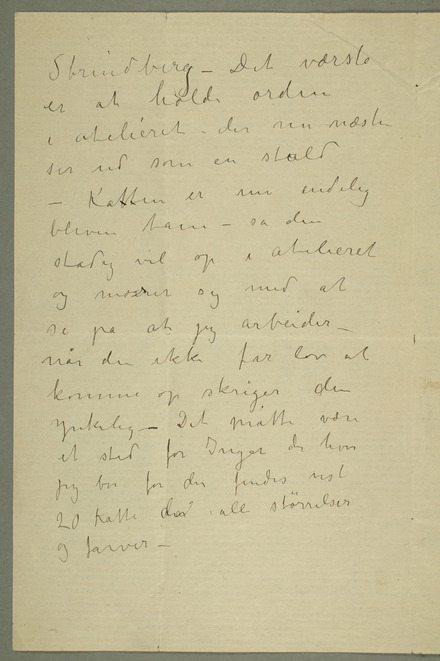 Strindberg – Det værste
er at holde orden
i atelieret – der nu næsten
ser ud som en stald
– Katten er nu endelig
bleven tam – så den
stadig vil op i atelieret
og morer sig med at
se på at jeg arbeider –
når den ikke får lov at
komme op skriger den
ynkelig – Det måtte være
et sted for Inger der hvor
jeg bor for der findes vist
20 katte der i alle størrelser
og farver –